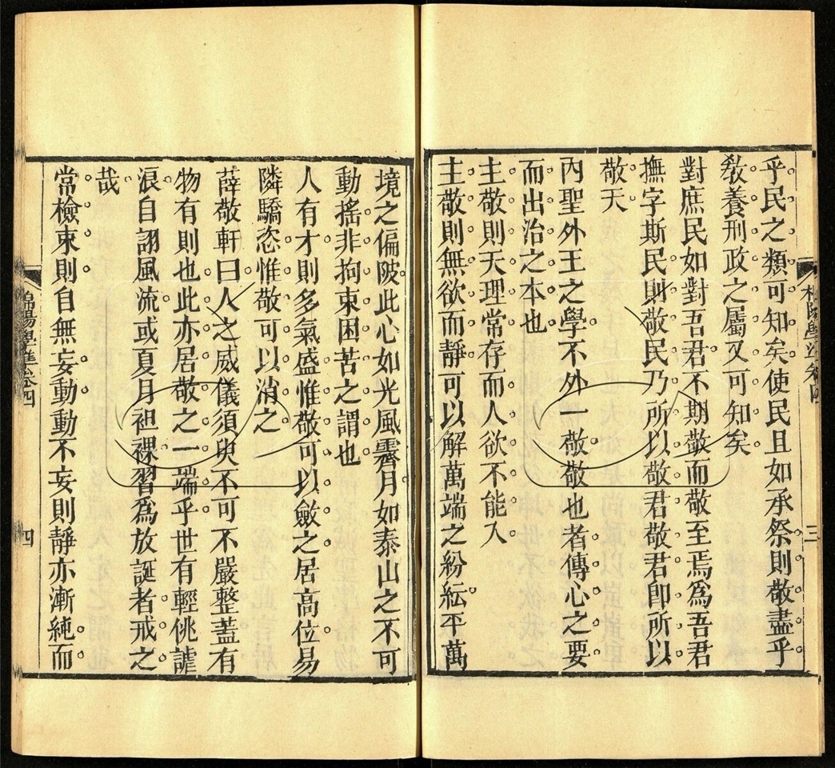 乎民之類可知矣使民且如承祭則敬盡乎
敎養刑政之屬又可知矣
對庶民如對吾君不期敬而敬至焉爲吾君
撫字斯民則敬民乃所以敬君敬君卽所以
敬天
內聖外王之學不外一敬敬也者傳心之要
而出治之本也
主敬則天理常存而人欲不能入
主敬則無欲而靜可以解萬端之紛紜平萬
境之偏陂此心如光風霽月如泰山之不可
動搖非拘束困苦之謂也
人有才則多氣盛惟敬可以斂之居高位易
隣驕恣惟敬可以消之
薛敬軒曰人之威儀須臾不可不嚴整蓋有
物有則也此亦居敬之一端乎世有輕佻謔
浪自詡風流或夏月袒裸習爲放誕者戒之
哉
常檢束則自無妄動動不妄則靜亦漸純而
棉陽學準卷四
三
棉陽學準卷四
四